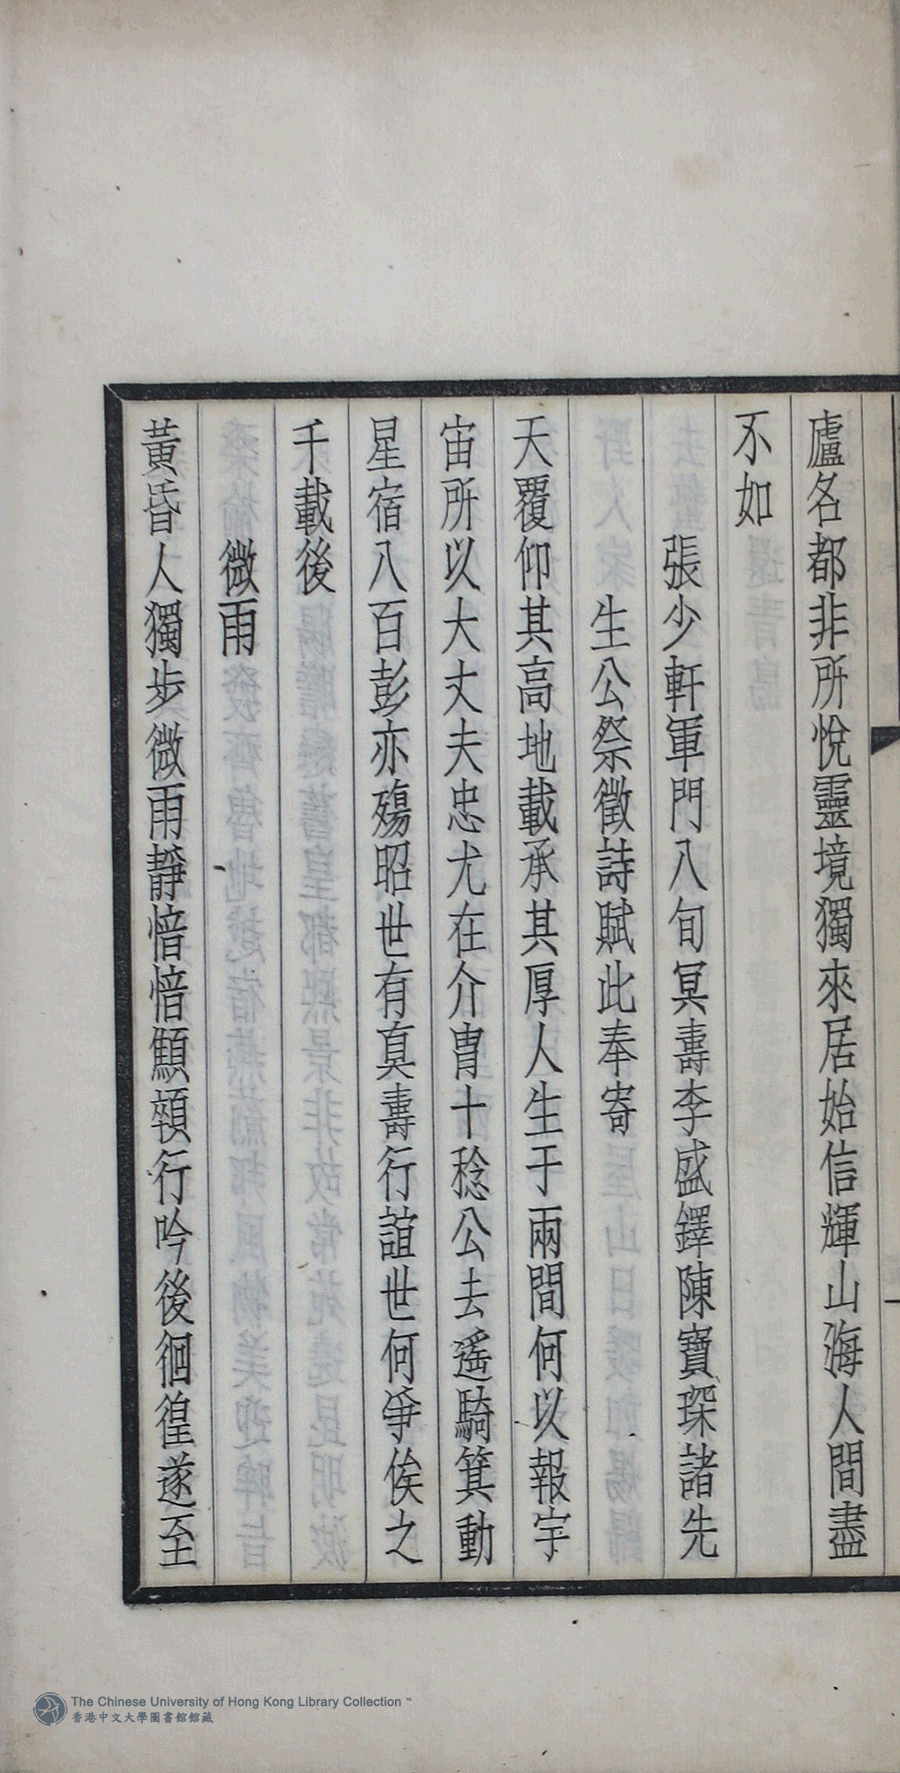 廬名都非所悅靈境獨來居始信輝山海人間盡
不如
張少軒軍門八旬冥壽李盛鐸陳寶琛諸先
生公祭徵詩賦此奉寄
天覆仰其高地載承其厚人生于兩間何以報宇
宙所以大丈夫忠尤在介冑十稔公去遙騎箕動
星宿八百彭亦殤昭世有真壽行誼世何爭俟之
千載後
微雨
黃昏人獨步微雨靜愔愔顦顇行吟後徊徨遂至
The Chinese University of Hong Kong Library Collection
香港中文大學圖書館館藏